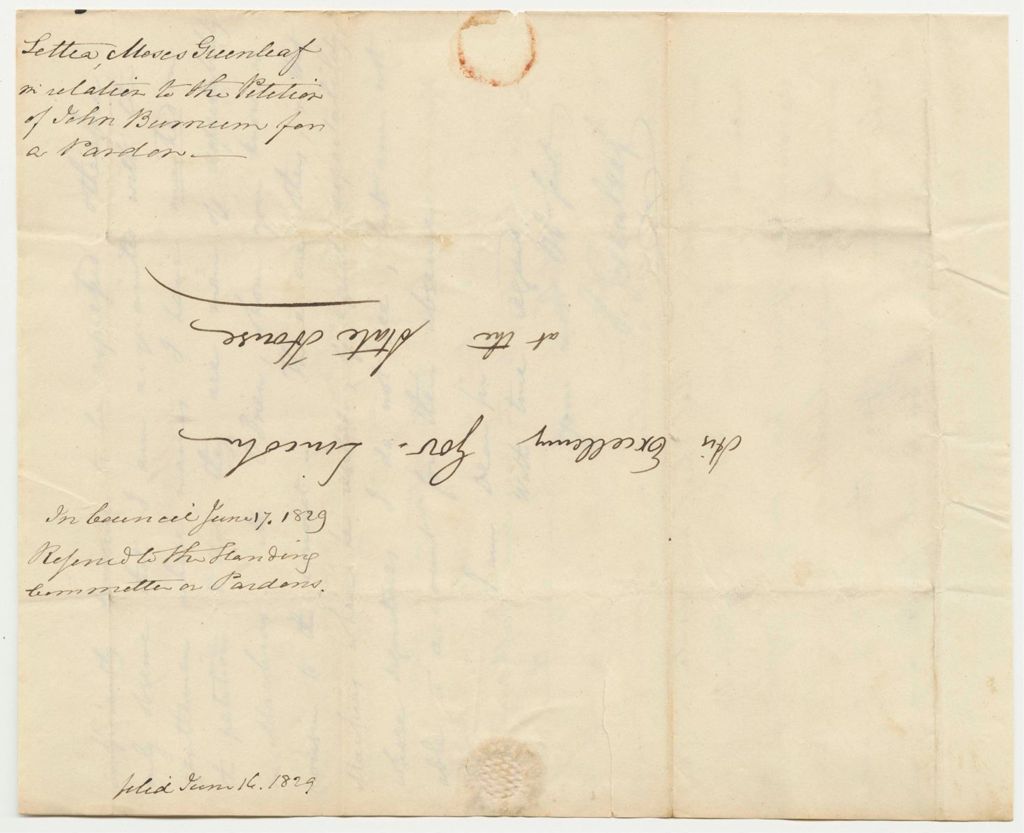 Letter, Moses Greenleaf
in relation to the Petition
of John Burnum for
a Pardon —
His Excellency Gov. Lincoln
at the State House
In Council June 17. 1829
Referred to the Standing
Committee on Pardons.
filed June 16. 1829